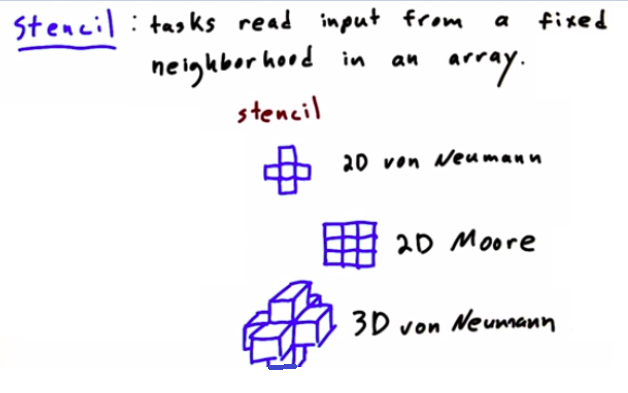 Stencil : tasks read input from a fixed
neighborhood in an array.
stencil
2D von Neumann
2D Moore
3D von Neumann